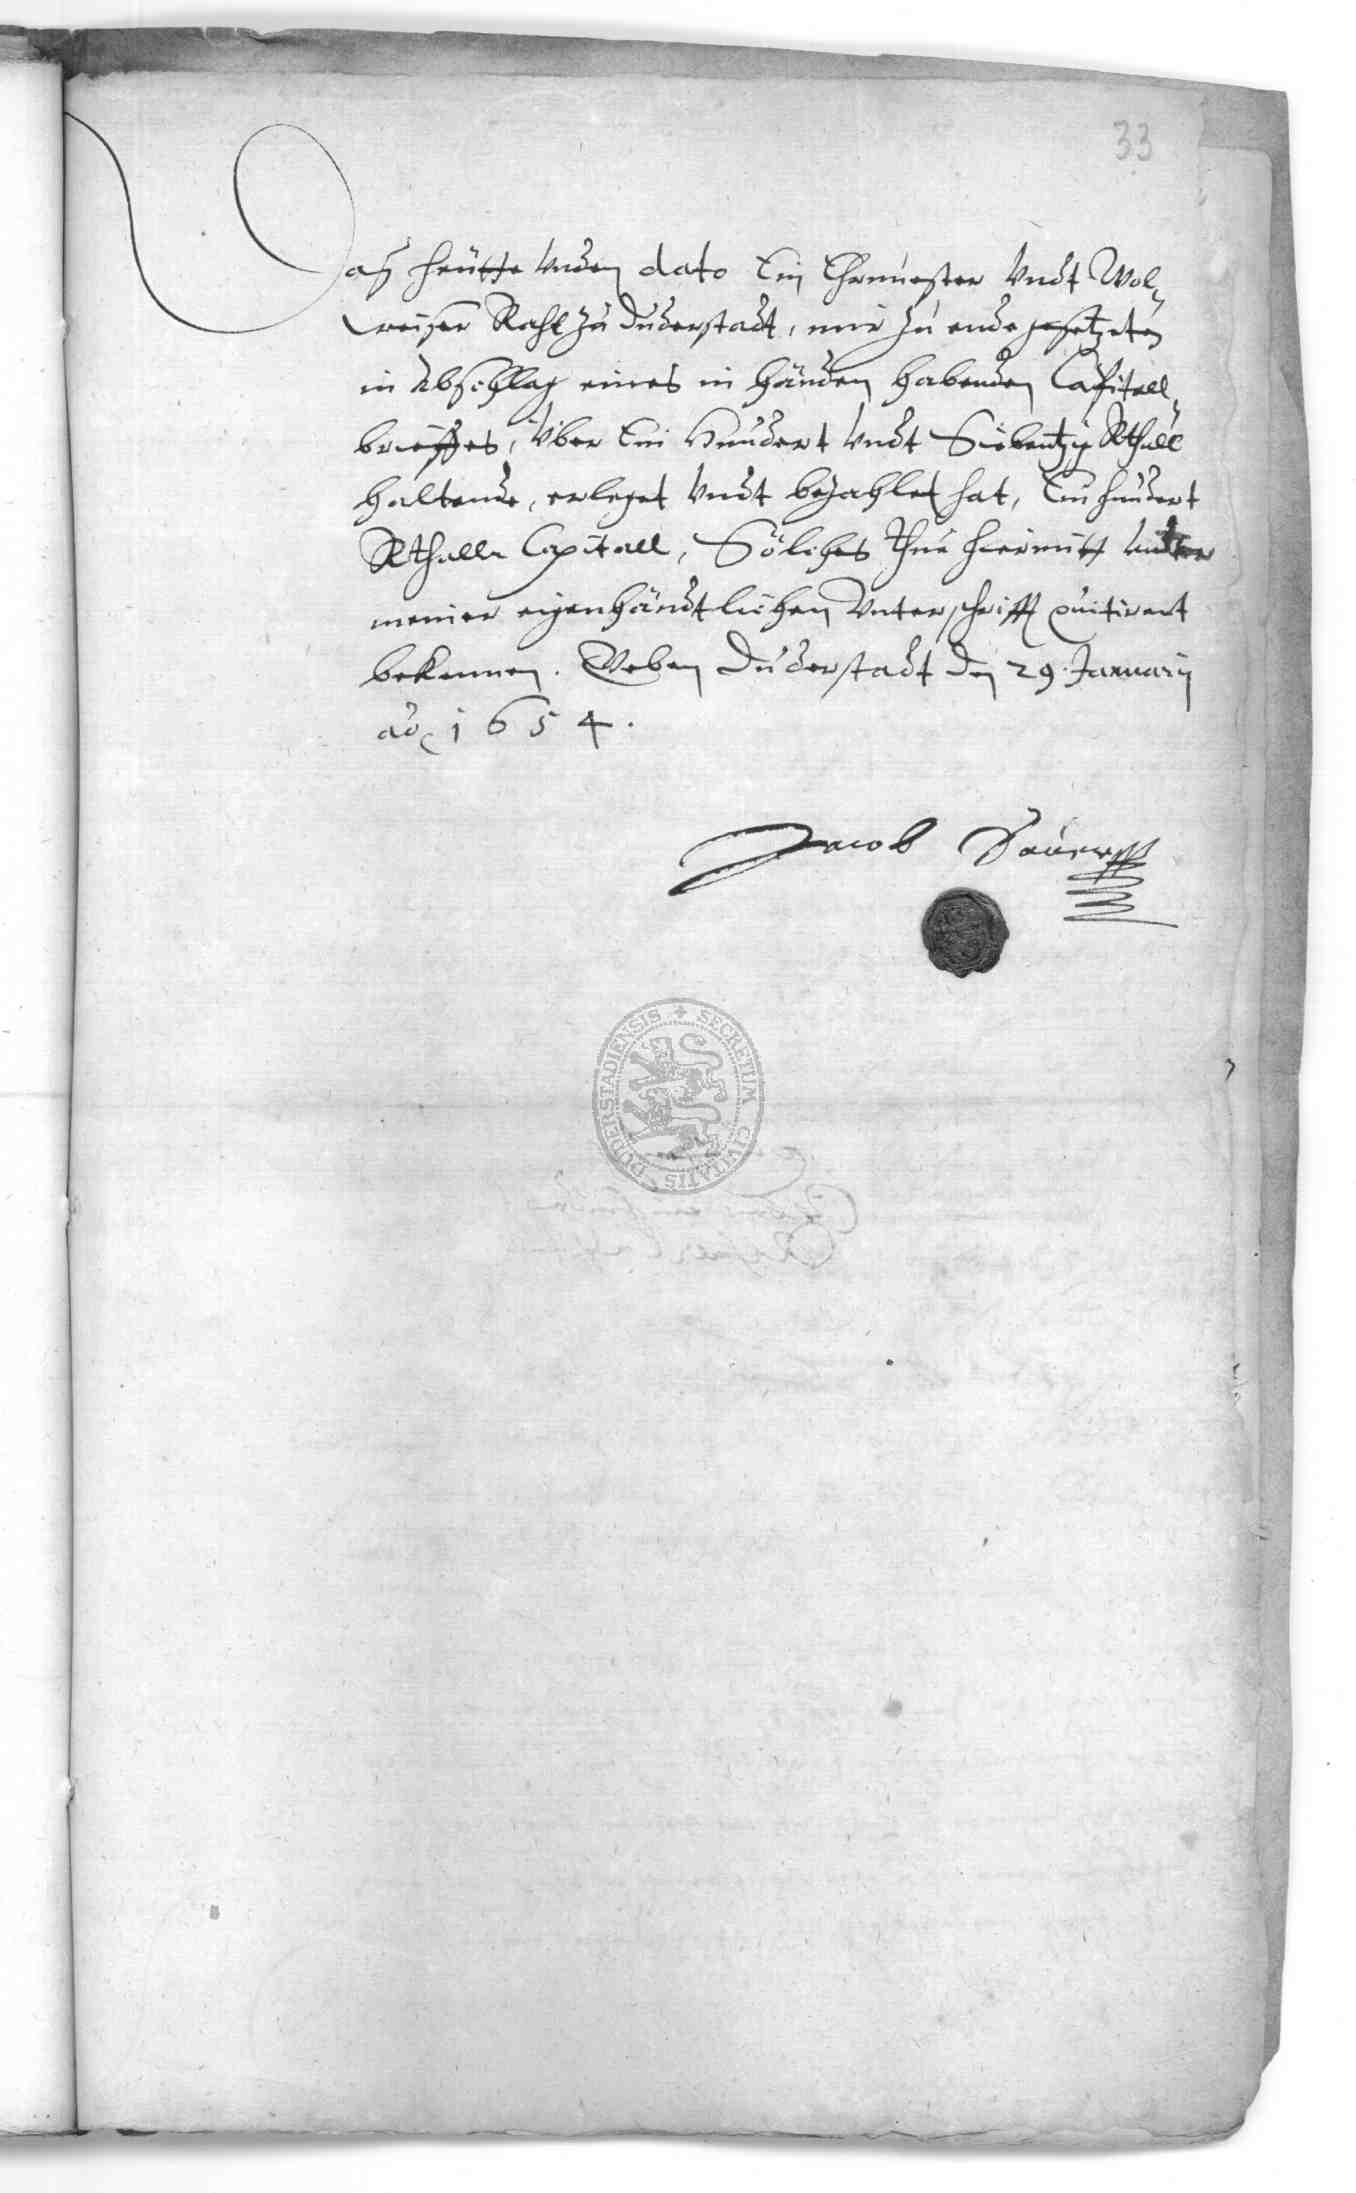 33
Daß heütte Unden dato Ein Ehrnuester Vndt Wol„
weiser Raht zu Duderstadt, mir zu ende gesetzeten
in Abschlag eines in händen habenden Capitall„
brieffes, Vber Ein Hundert Vndt Siebentzig Rthall
haltende, erleget Vndt bezahlet hat, Ein hundert
Rthaller Capitall, Solches Thue hiermitt unter
meiner eigenhändtlichen Vnterschrifft quitirent
bekennen. Geben Duderstadt den 29. Januarij
ao 1654.
Jacob
SECRETUM CIVITATIS DUDERSTADIENSIS